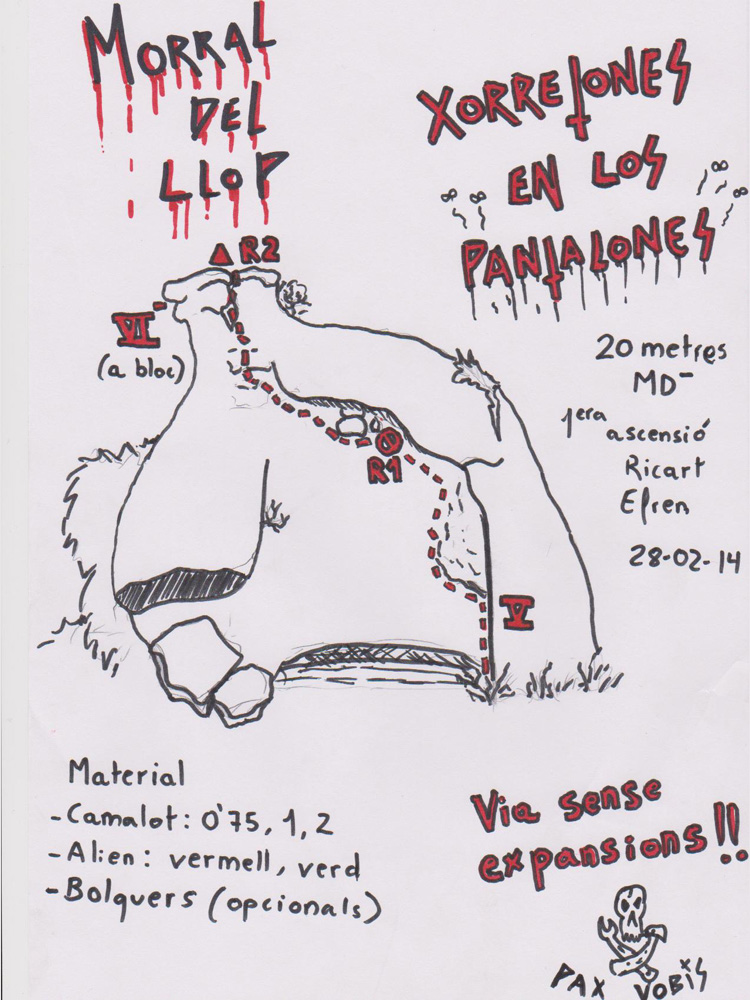 MORRAL
DEL
LLOP
XORRETONES
EN LOS
PANTALONES
R2
VI
(a bloc)
20 metres
MD-
1era ascensió
Ricart
Efren
28-02-14
R1
V
Material
- Camalot: 0'75, 1, 2
- Alien: vermell, verd
- Bolquers (opcionals)
Via sense
expansions!!
PAX VOBIS